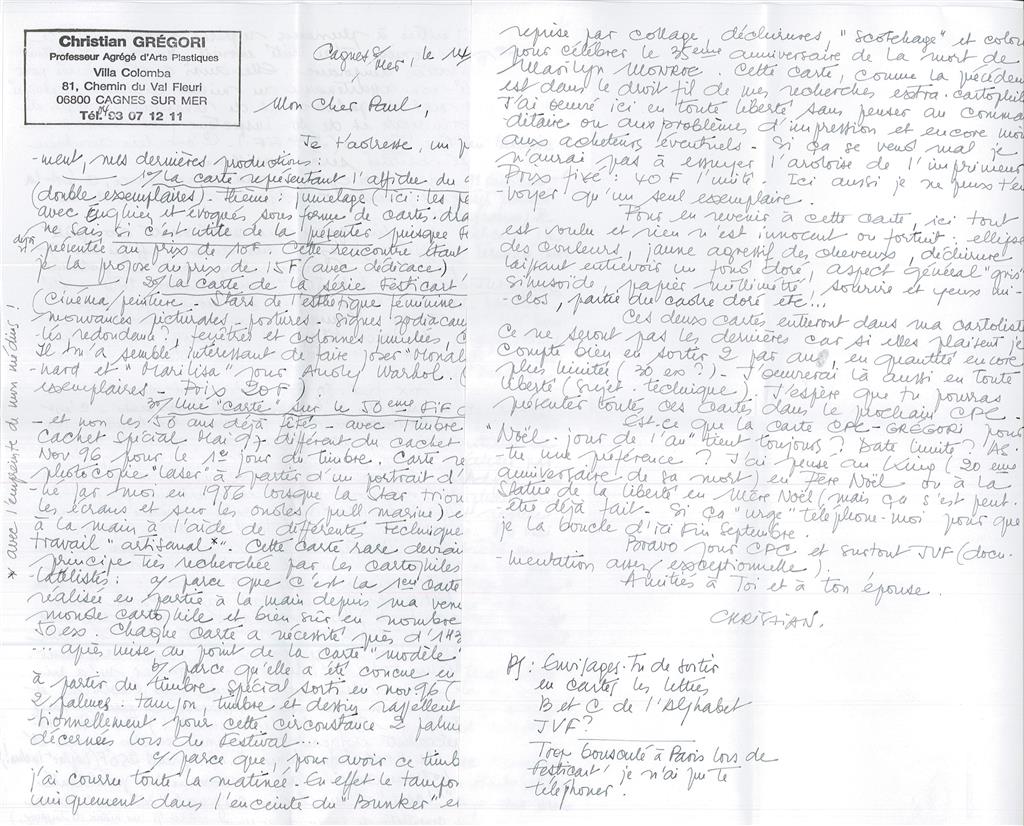 Christian GRÉGORI
Professeur Agrégé d'Arts Plastiques
Villa Colomba
81, Chemin du Val Fleuri
06800 CAGNES SUR MER
Tél. 93 07 12 11
Cagnes s/ Mer, le 14
Mon cher Paul,
Je t'adresse, un p
-ment, mes dernières productions :
1°/ La carte représentant l'affiche du
(double exemplaires). thème : jumelage (ici : les
avec Enghien et évoqués sous forme de cartes.
ne sais si c'est utile de la présenter puisque
déjà présentée au prix de 10F. Cette rencontre étant
je la propose au prix de 15F (avec dédicace)
2°/ la carte de la série Festicart
(cinéma/peinture - Stars de l'esthétique féminine
mouvances picturales - postures - signes zodiacau
-lés redondants ? fenêtres et colonnes jumelées,
Il m'a semblé intéressant de faire poser "Monal
-nard et "Marilisa" pour Andy Warhol. (
exemplaires - Prix 30F)
3°/ Une "carte" sur le 50ème FIF
- et non les 50 ans déjà fêtés - avec Timbre
Cachet spécial Mai 97 différent du cachet
Nov 96 pour le 1er jour du timbre. Carte re
photocopie "laser" à partir d'un portrait d'
-né par moi en 1986 lorsque la Star triom
les écrans et sur les ondes (pull marine) e
à la main à l'aide de différentes techniques
travail "artisanal*". Cette carte rare devrai
principe très recherchée par les cartophiles
-latélistes : a/ parce que c'est la 1ère carte
réalisée en partie à la main depuis ma venue
monde cartophile et bien sûr en nombre
50 ex. Chaque carte a nécessité près d'1H3
... après mise au point de la carte "modèle"
b/ parce qu'elle a été conçue en
à partir du timbre spécial sorti en nov 96 (
2 palmes. tampon, timbre et dessin rappellent
-tionnellement pour cette circonstance 2 palme
décernées lors du Festival...
c/ parce que, pour avoir ce timb
j'ai couru toute la matinée. En effet le tampon
uniquement dans l'enceinte du "Bunker" et
* avec l'empreinte de mon médius !
reprise par collage, déchirures, "scotchage" et color
pour célébrer le 35ème anniversaire de la mort de
Marilyn Monroe. Cette carte, comme la précédente
est dans le droit fil de mes recherches extra-cartophil
J'ai œuvré ici en toute liberté sans penser au comman
ditaire ou aux problèmes d'impression et encore moins
aux acheteurs éventuels. Si ça se vend mal je
n'aurai pas à essuyer l'ardoise de l'imprimeur
Prix fixé : 40 F l'unité. Ici aussi je ne peux t'en
-voyer qu'un seul exemplaire.
Pour en revenir à cette carte, ici tout
est voulu et rien n'est innocent ou fortuit : ellipse
des couleurs, jaune agressif des cheveux, déchirure
laissant entrevoir un fond doré, aspect général "gris"
sinusoïde, papier millimétré, sourire et yeux mi-
-clos, partie du cadre doré etc...
Ces deux cartes entreront dans ma cartoliste
Ce ne seront pas les dernières car si elles plaisent je
compte bien en sortir 2 par an, en quantité encore
plus limitée (30 ex ?) - J'œuvrerai là aussi en toute
liberté (sujet - technique). J'espère que tu pourras
présenter toutes ces cartes dans le prochain CPC -
Est-ce que la carte CPC-GRÉGORI pour
"Noël - jour de l'an" tient toujours ? Date limite ? As-
-tu une préférence ? J'ai pensé au King (20ème
anniversaire de sa mort) en Père Noël ou à la
Statue de la liberté en Mère Noël (mais ça s'est peut-
-être déjà fait - Si ça "urge" téléphone-moi pour que
je la boucle d'ici fin Septembre.
Bravo pour CPC et surtout JVF (docu-
-mentation assez exceptionnelle).
Amitiés à Toi et à ton épouse.
CHRISTIAN.
PS : Envisages-Tu de sortir
en cartes les lettres
B et C de l'Alphabet
JVF ?
Trop bousculé à Paris lors de
Festicart' je n'ai pu te
téléphoner !